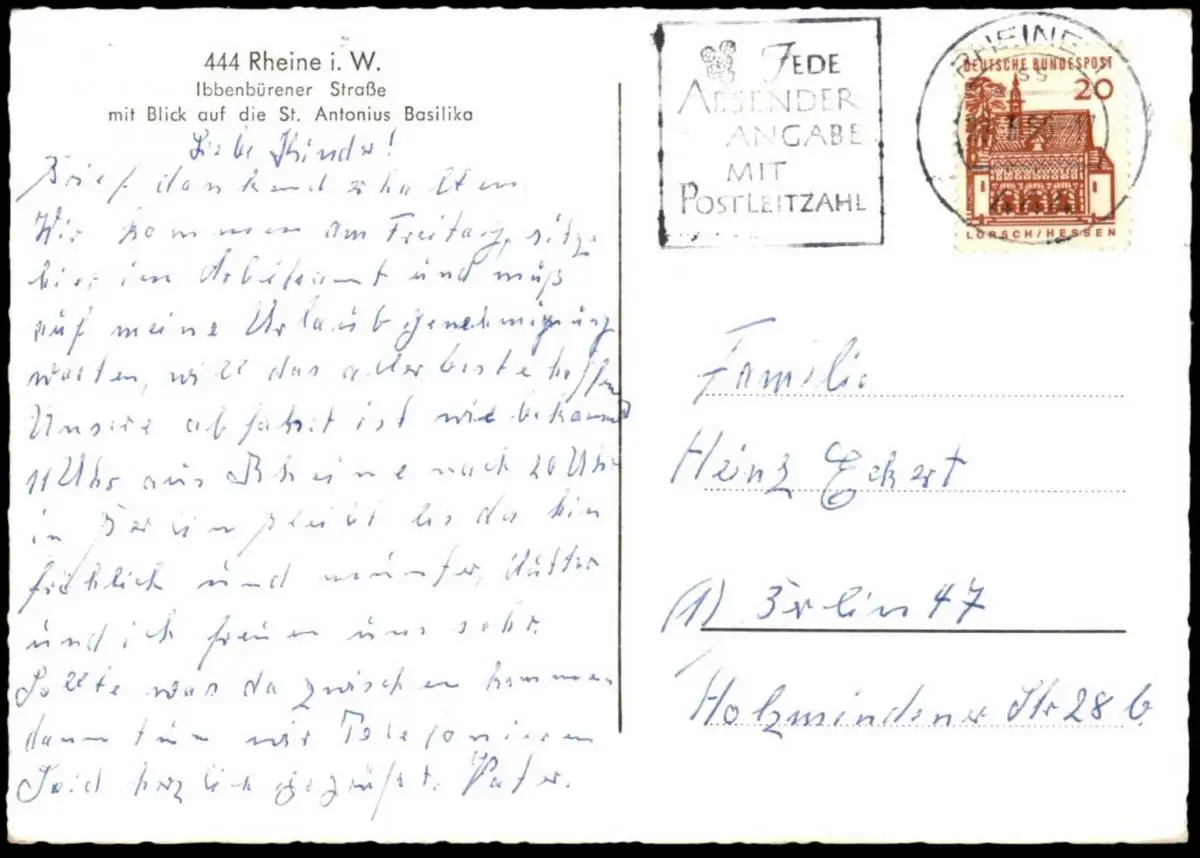 444 Rheine i. W.
Ibbenbürener Straße
mit Blick auf die St. Antonius Basilika
Liebe Kinder!
Brief dankend erhalten
Wir kommen am Freitag, sitze
hier im Arbeitsamt und muß
auf meine Urlaubgenehmigung
warten, will das allerbeste hoffen
Unsere abfahrt ist wie bekannt
11 Uhr aus Rheine nach 20 Uhr
in Berlin bleibt bis da hin
fröhlich und munter, Mutter
und ich freuen uns sehr.
Sollte was dazwischen kommen
dann tun wir Telefonieren
Seid herzlich gegrüßt. Vater.
JEDE
ABSENDER
ANGABE
MIT
POSTLEITZAHL
RHEINE
DEUTSCHE BUNDESPOST
20
LORSCH/HESSEN
Familie
Heinz Eckert
(1) Berlin 47
Holzmindener Str 28 b